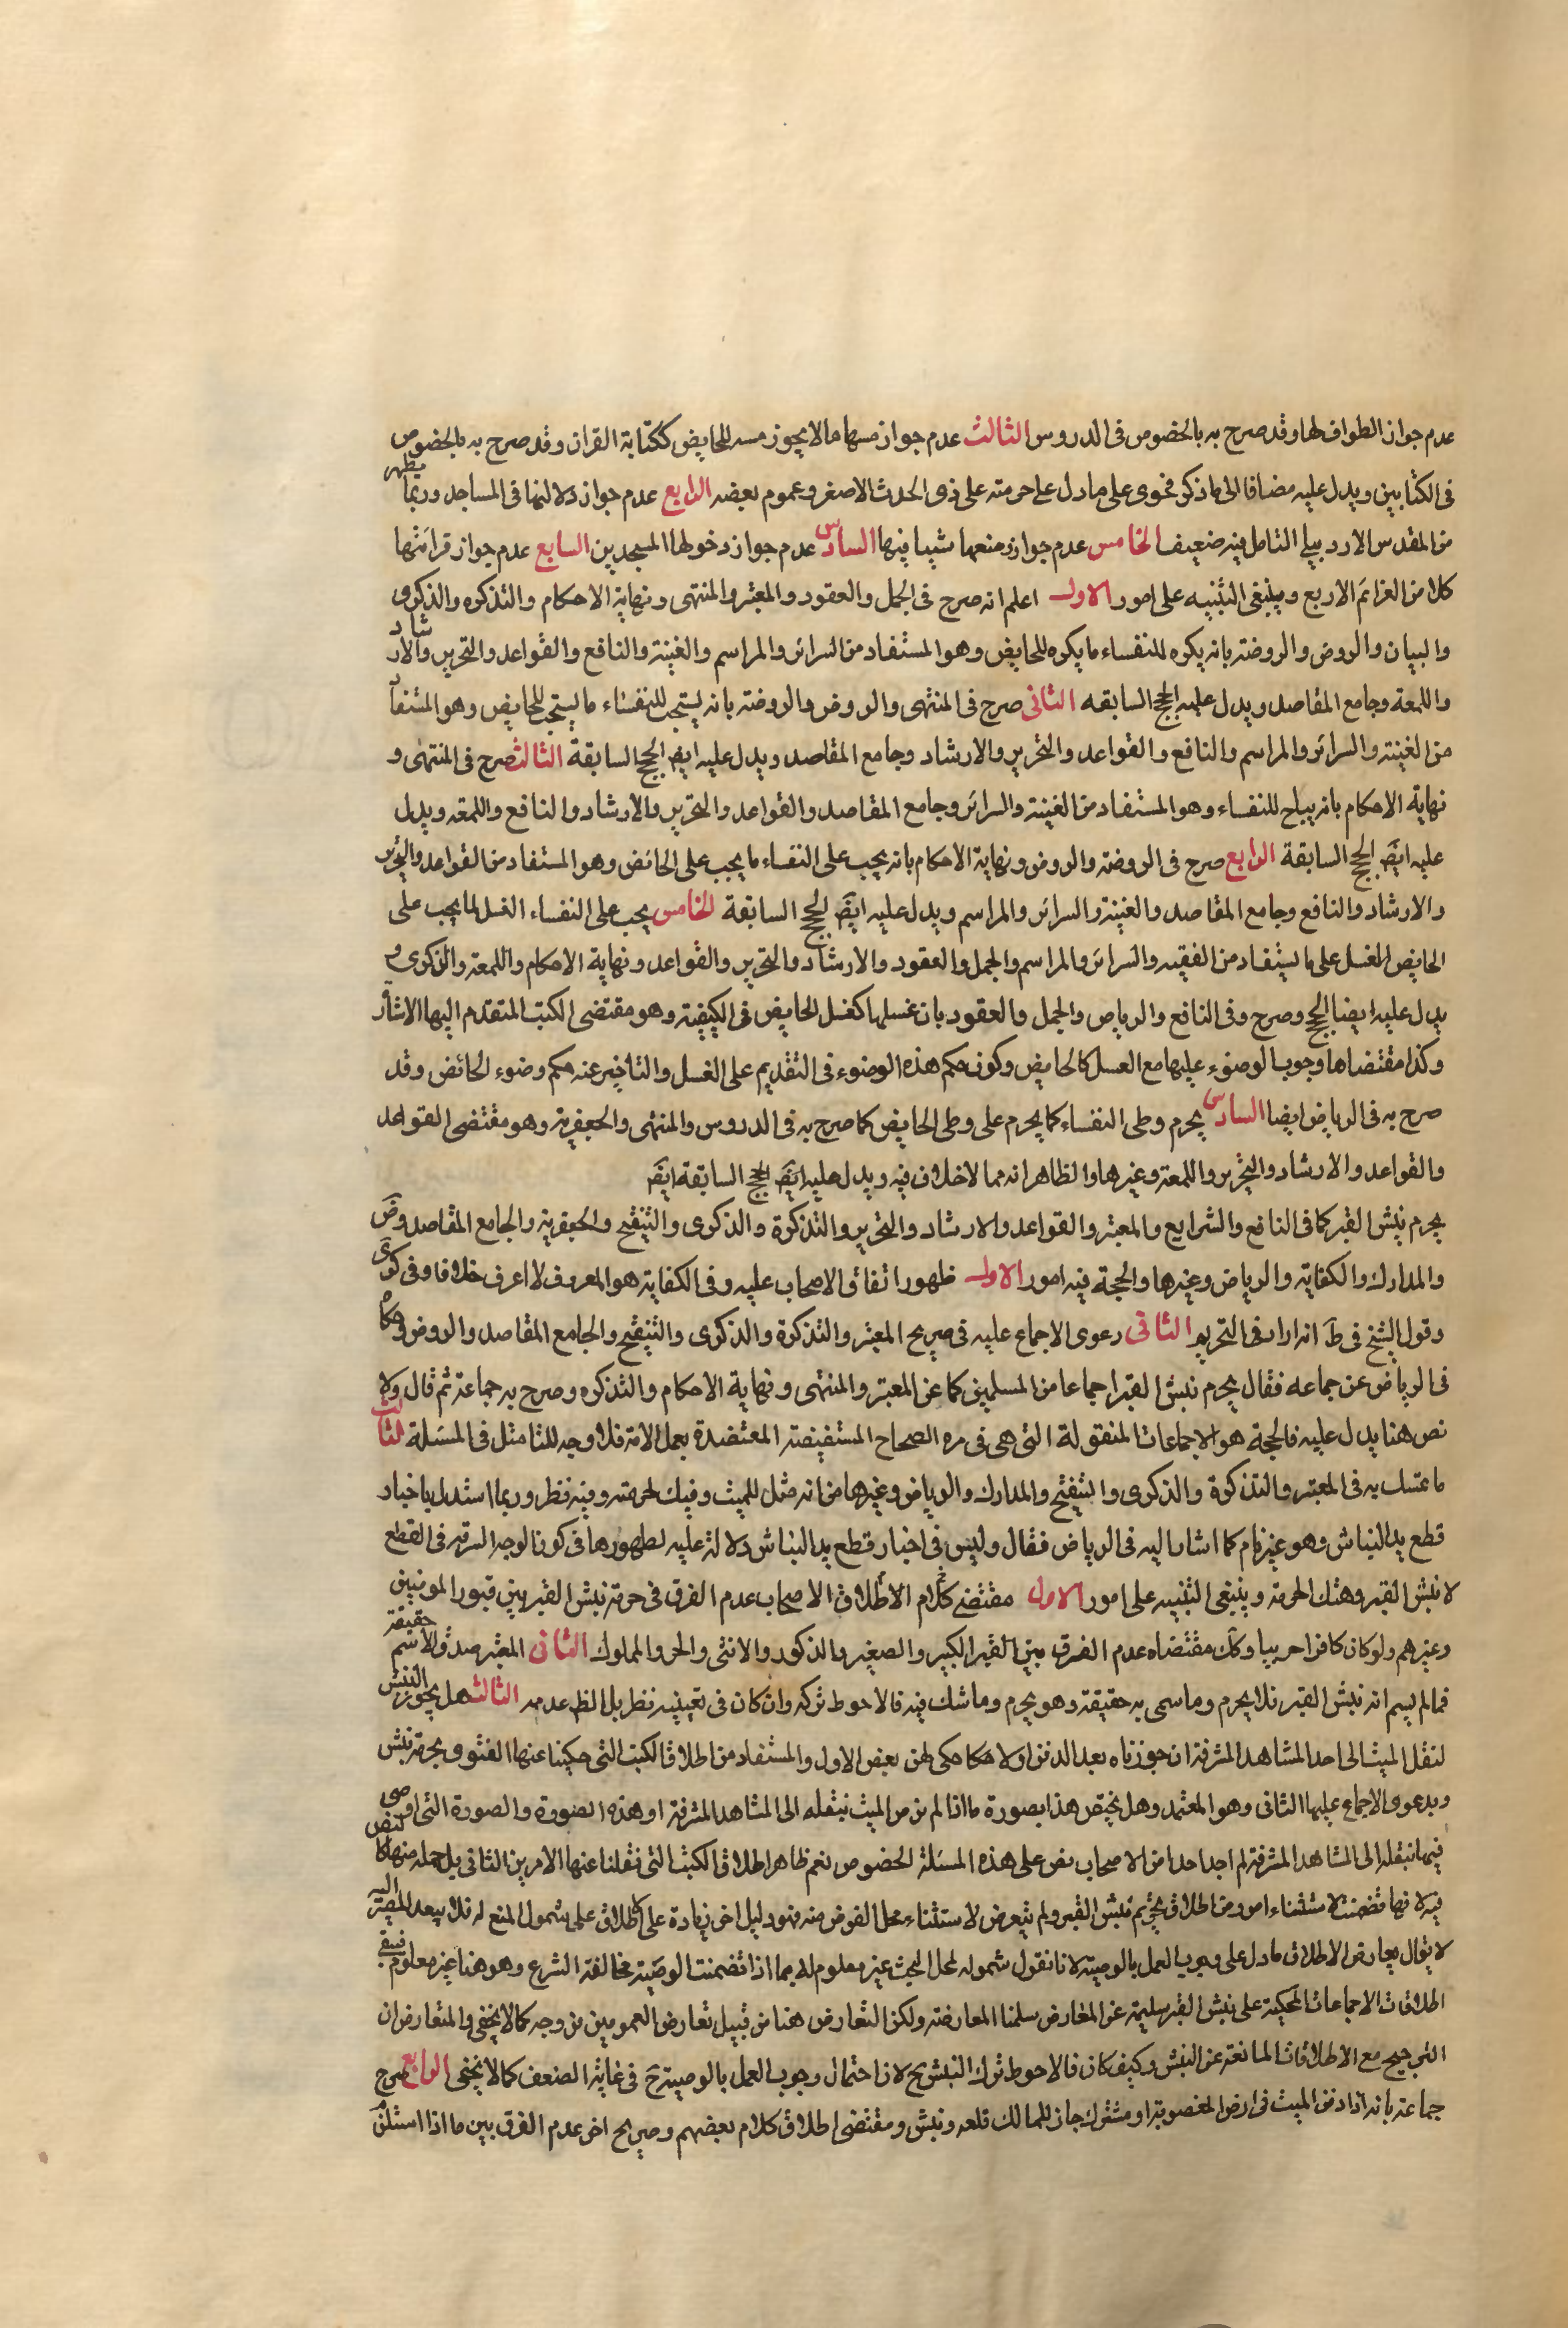 عدم جواز الطواف لها وقد صرح به بالخصوص فى الدروس الثالث عدم جواز مسها ما لا يجوز مسه للحايض ككتابة القران وقد صرح به بالخصوص
فى الكتابين ويدل عليه مضافا الى ما ذكر فحوى على ما دل على حرمته على ذى الحدث الاصغر وعموم بعضه الرابع عدم جواز دلالتها فى المساجد وربما يظهر
من المقدس الاردبيلى التامل فيه ضعيف الخامس عدم جواز ومنعها شيبا فيها السادس عدم جواز دخولها المسجدين السابع عدم جواز قرائتها
كلا من العزائم الاربع وينبغى التنبيه على امور الاول اعلم انه صرح فى الجمل والعقود والمعتبر والمنتهى ونهاية الاحكام والتذكره والذكرى
والبيان والروض والروضة بانه يكره للنفساء ما يكره للحايض وهو المستفاد من السرائر والمراسم والغنية والنافع والقواعد والتحرير والارشاد
واللمعة وجامع المقاصد ويدل عليه الحجج السابقه الثانى صرح فى المنتهى والروض والروضة بانه يستحب للنفساء ما يستحب للحايض وهو المستفاد
من الغنية والسرائر والمراسم والنافع والقواعد والتحرير والارشاد وجامع المقاصد ويدل عليه ايض الحجج السابقة الثالث صرح فى المنتهى و
نهاية الاحكام بانه يباح للنفساء وهو المستفاد من الغنية والسرائر وجامع المقاصد والقواعد والتحرير والارشاد والنافع واللمعه ويدل
عليه ايض الحجج السابقة الرابع صرح فى الروضة والروض ونهاية الاحكام بانه يجب على النفساء ما يجب على الحائض وهو المستفاد من القواعد والتحرير
والارشاد والنافع وجامع المقاصد والغنية والسرائر والمراسم ويدل عليه ايض الحجج السابقة الخامس يجب على النفساء الغسل لما يجب على
الحايض الغسل على ما يستفاد من الفقيه والسرائر والمراسم والجمل والعقود والارشاد والتحرير والقواعد ونهاية الاحكام واللمعة والذكرى و
يدل عليه ايضا الحجج وصرح وفى النافع والرياض والجمل والعقود بان غسلها كغسل الحايض فى الكيفية وهو مقتضى الكتب المتقدم اليها الاشاره
وكذا مقتضاها وجوب الوضوء عليها مع الغسل كالحايض وكون حكم هذه الوضوء فى التقديم على الغسل والتاخير عنه حكم وضوء الحائض وقد
صرح به فى الرياض ايضا السادس يحرم وطى النفساء كما يحرم على وطى الحايض كما صرح به فى الدروس والمنتهى والجعفرية وهو مقتضى القواعد
والقواعد والارشاد والتحرير واللمعة وغيرها والظاهر انه مما لا خلاف فيه ويدل عليه ايض الحجج السابقة ايض
يحرم نبش القبر كما فى النافع والشرايع والمعتبر والقواعد والارشاد والتحرير والتذكرة والذكرى والتنقيح والجعفرية والجامع المقاصد وض
والمدارك والكفاية والرياض وغيرها والحجة فيه امور الاول ظهور اتفاق الاصحاب عليه وفى الكفاية هو المعروف لا اعرف خلافا وفى كرى
وقول الشيخ فى ط انه اراد فى التحريم الثانى دعوى الاجماع عليه فى صريح المعتبر والتذكرة والذكرى والتنقيح والجامع المقاصد والروض وحكاه
فى الرياض عن جماعه فقال يحرم نبش القبر اجماعا من المسلمين كما عن المعتبر والمنتهى ونهاية الاحكام والتذكره وصرح به جماعة ثم قال ولا
نص هنا يدل عليه فالحجة هو الاجماعات المنقولة التى هى فى مره الصحاح المستفيضة المعتضدة بعمل الامة فلا وجه للتامثل فى المسئلة الثالث
ما تمسك به فى المعتبر والتذكرة والذكرى والتنقيح والمدارك والرياض وغيرها من انه مثل للميت وفيك لحرمته وفيه نظر وربما استدل باخبار
قطع يد النباش وهو غير تام كما اشار اليه فى الرياض فقال وليس فى اخبار قطع يد النباش دلالة عليه لظهورها فى كون الوجه السرقه فى القطع
لا نبش القبر وهتك الحرمة وينبغى التنبيه على امور الاول مقتضى كلام الاطلاق الاصحاب عدم الفرق فى حرمة نبش القبر بين قبور المومنين
وغيرهم ولو كان كافرا حربيا وكك مقتضاه عدم الفرق بين القبر الكبير والصغير والذكور والانثى والحر والمملوك الثانى المعتبر صدق الاسم حقيقة
فما لم يسم انه نبش القبر فلا يحرم وما سمى به حقيقة وهو يحرم وما شك فيه فالاحوط تركه وان كان فى تعيينه نظر بل الظ عدمه الثالث هل يجوز النبش
لنقل الميت الى احد المشاهد المشرفة ان جوزناه بعد الدفن او لا كما حكى لهن بعض الاول والمستفاد من اطلاق الكتب التى حكينا عنها الفتوى بحرمة نبش
وبدعوى الاجماع عليها الثانى وهو المعتمد وهل يختص هذا بصورة ما اذا لم ن من الميت بنقله الى المشاهد المشرفة او هذه الصورة والصورة التى اوصى
فيها بنقله الى المشاهد المشرفة لم اجد احدا من الاصحاب نص على هذه المسئلة الخصوص نعم ظاهر اطلاق الكتب التى نقلنا عنها الامرين الثانى بل جمله منها كالنص
فيه لانها تضمنت الاستثناء امور من اطلاق تحريم نبش القبر ولم يتعرض لاستثناء محل الفرض منه فهو دليل اخر زيادة على الاطلاق على شمول المنع له فلا يبعد المصير اليه
لا يقال يعارض الاطلاق ما دل على وجوب العمل بالوصية لانا نقول شموله لمحل البحث غير معلوم لا بما اذا تضمنت الوصية مخالفة الشرع وهو هنا غير معلوم فيبقى
اطلاقات الاجماعات المحكية على نبش القبر سليمة عن المعارض سلمنا المعارضة ولكن التعارض هنا من قبيل تعارض العمومين من وجه كما لا يخفى والمتعارض ان
الترجيح مع الاطلاقات المانعة عن النبش وكيف كان فالاحوط ترك النبش ح لان احتمال وجوب العمل بالوصية ح فى غاية الضعف كما لا يخفى الرابع صرح
جماعة بانه اذا دفن الميت فى ارض المغصوبة او مشترك جاز للمالك قلعه ونبش ومقتضى اطلاق كلام بعضهم وصريح اخر عدم الفرق بين ما اذا استلزم